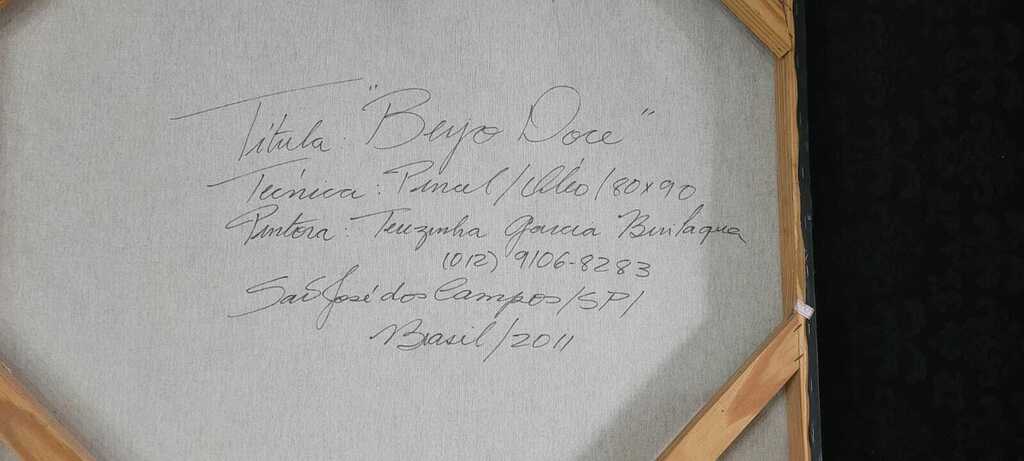 Titula: "Beyo Doce"
Técnica: Pincel/Óleo/80x90
Pintora: Terezinha Garcia Bevilaqua
(012) 9106-8283
São José dos Campos/SP/
Brasil/2011